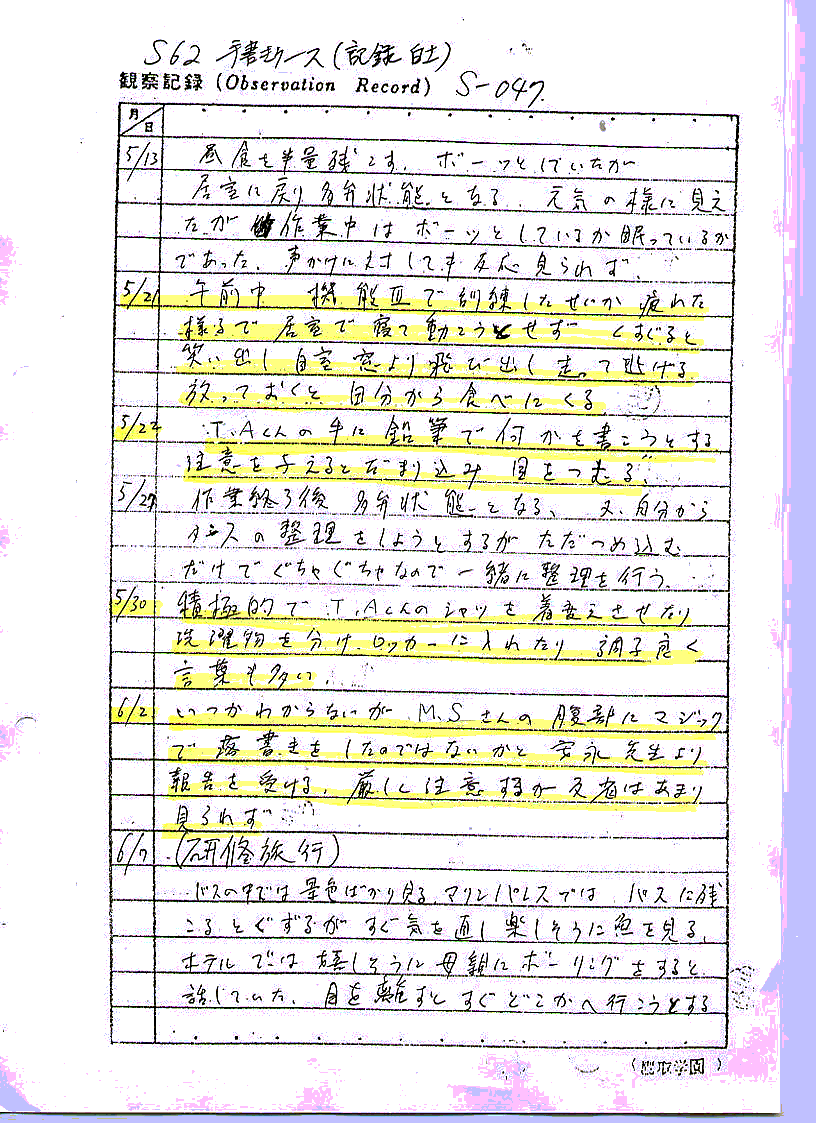 S62 手書きケース(記録 白土)
観察記録 (Observation Record) S-047.
月/日
5/13 昼食を半量残こす。ボーッとしていたが
居室に戻り多弁状態となる。元気の様に見え
たが 作業中はボーッとしているか眠っているか
であった。声かけに対しても反応見られず。
5/21 午前中 機能Ⅲで訓練したせいか 疲れた
様子で居室で寝て動こうとせず くすぐると
笑い出し自室窓より飛び出し走って逃げる
放っておくと自分から食べにくる
5/22 T.Aくんの手に鉛筆で何かを書こうとする
注意を与えるとだまり込み 目をつむる。
5/27 作業終了後 多弁状態となる、又、自分から
タンスの整理をしようとするが ただつめ込む
だけでぐちゃぐちゃなので一緒に整理を行う。
5/30 積極的で T.Aくんのシャツを着変えさせたり
洗濯物を分け ロッカーに入れたり 調子良く
言葉も多い。
6/2 いつかわからないが M.Sさんの腹部にマジック
で落書きをしたのではないかと 安永先生より
報告を受ける。厳しく注意するが反省はあまり
見られず
6/7 (研修旅行)
バスの中では景色ばかり見る。マリンパレスでは バスに残
こるとぐずるが すぐ気を直し楽しそうに魚を見る。
ホテルでは嬉しそうに母親にボーリングをすると
話していた。目を離すとすぐどこかへ行こうとする
( 鷹取学園 )